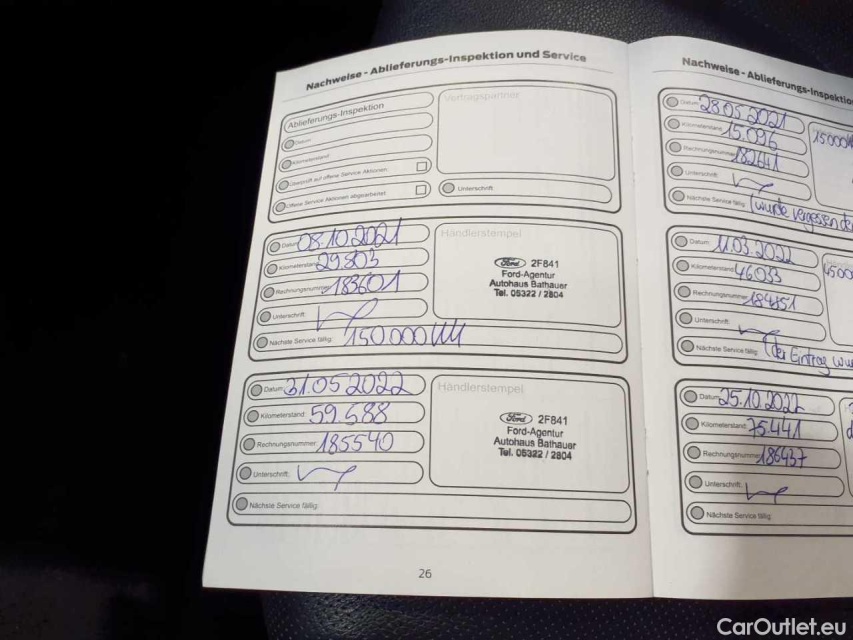 Nachweise - Ablieferungs-Inspektion und Service
Ablieferungs-Inspektion
Datum:
Kilometerstand:
Überprüft auf offene Service Aktionen
Offene Service Aktionen abgearbeitet
Vertragspartner
Unterschrift
Datum: 08.10.2021
Kilometerstand: 29.803
Rechnungsnummer: 183601
Unterschrift:
Nächste Service fällig: 150.000 KM
Händlerstempel
Ford 2F841
Ford-Agentur
Autohaus Bathauer
Tel. 05322 / 2804
Datum: 31.05.2022
Kilometerstand: 59.588
Rechnungsnummer: 185540
Unterschrift:
Nächste Service fällig:
Händlerstempel
Ford 2F841
Ford-Agentur
Autohaus Bathauer
Tel. 05322 / 2804
26
Nachweise - Ablieferungs-Inspektio
Datum: 28.05.2021
Kilometerstand: 15.096
Rechnungsnummer: 182641
Unterschrift:
Nächste Service fällig: (wurde vergessen
15000
Datum: 11.03.2022
Kilometerstand: 46033
Rechnungsnummer: 184851
Unterschrift:
Nächste Service fällig: (der Eintrag wu
Datum: 25.10.2022
Kilometerstand: 75.441
Rechnungsnummer: 186437
Unterschrift:
Nächste Service fällig:
CarOutlet.eu